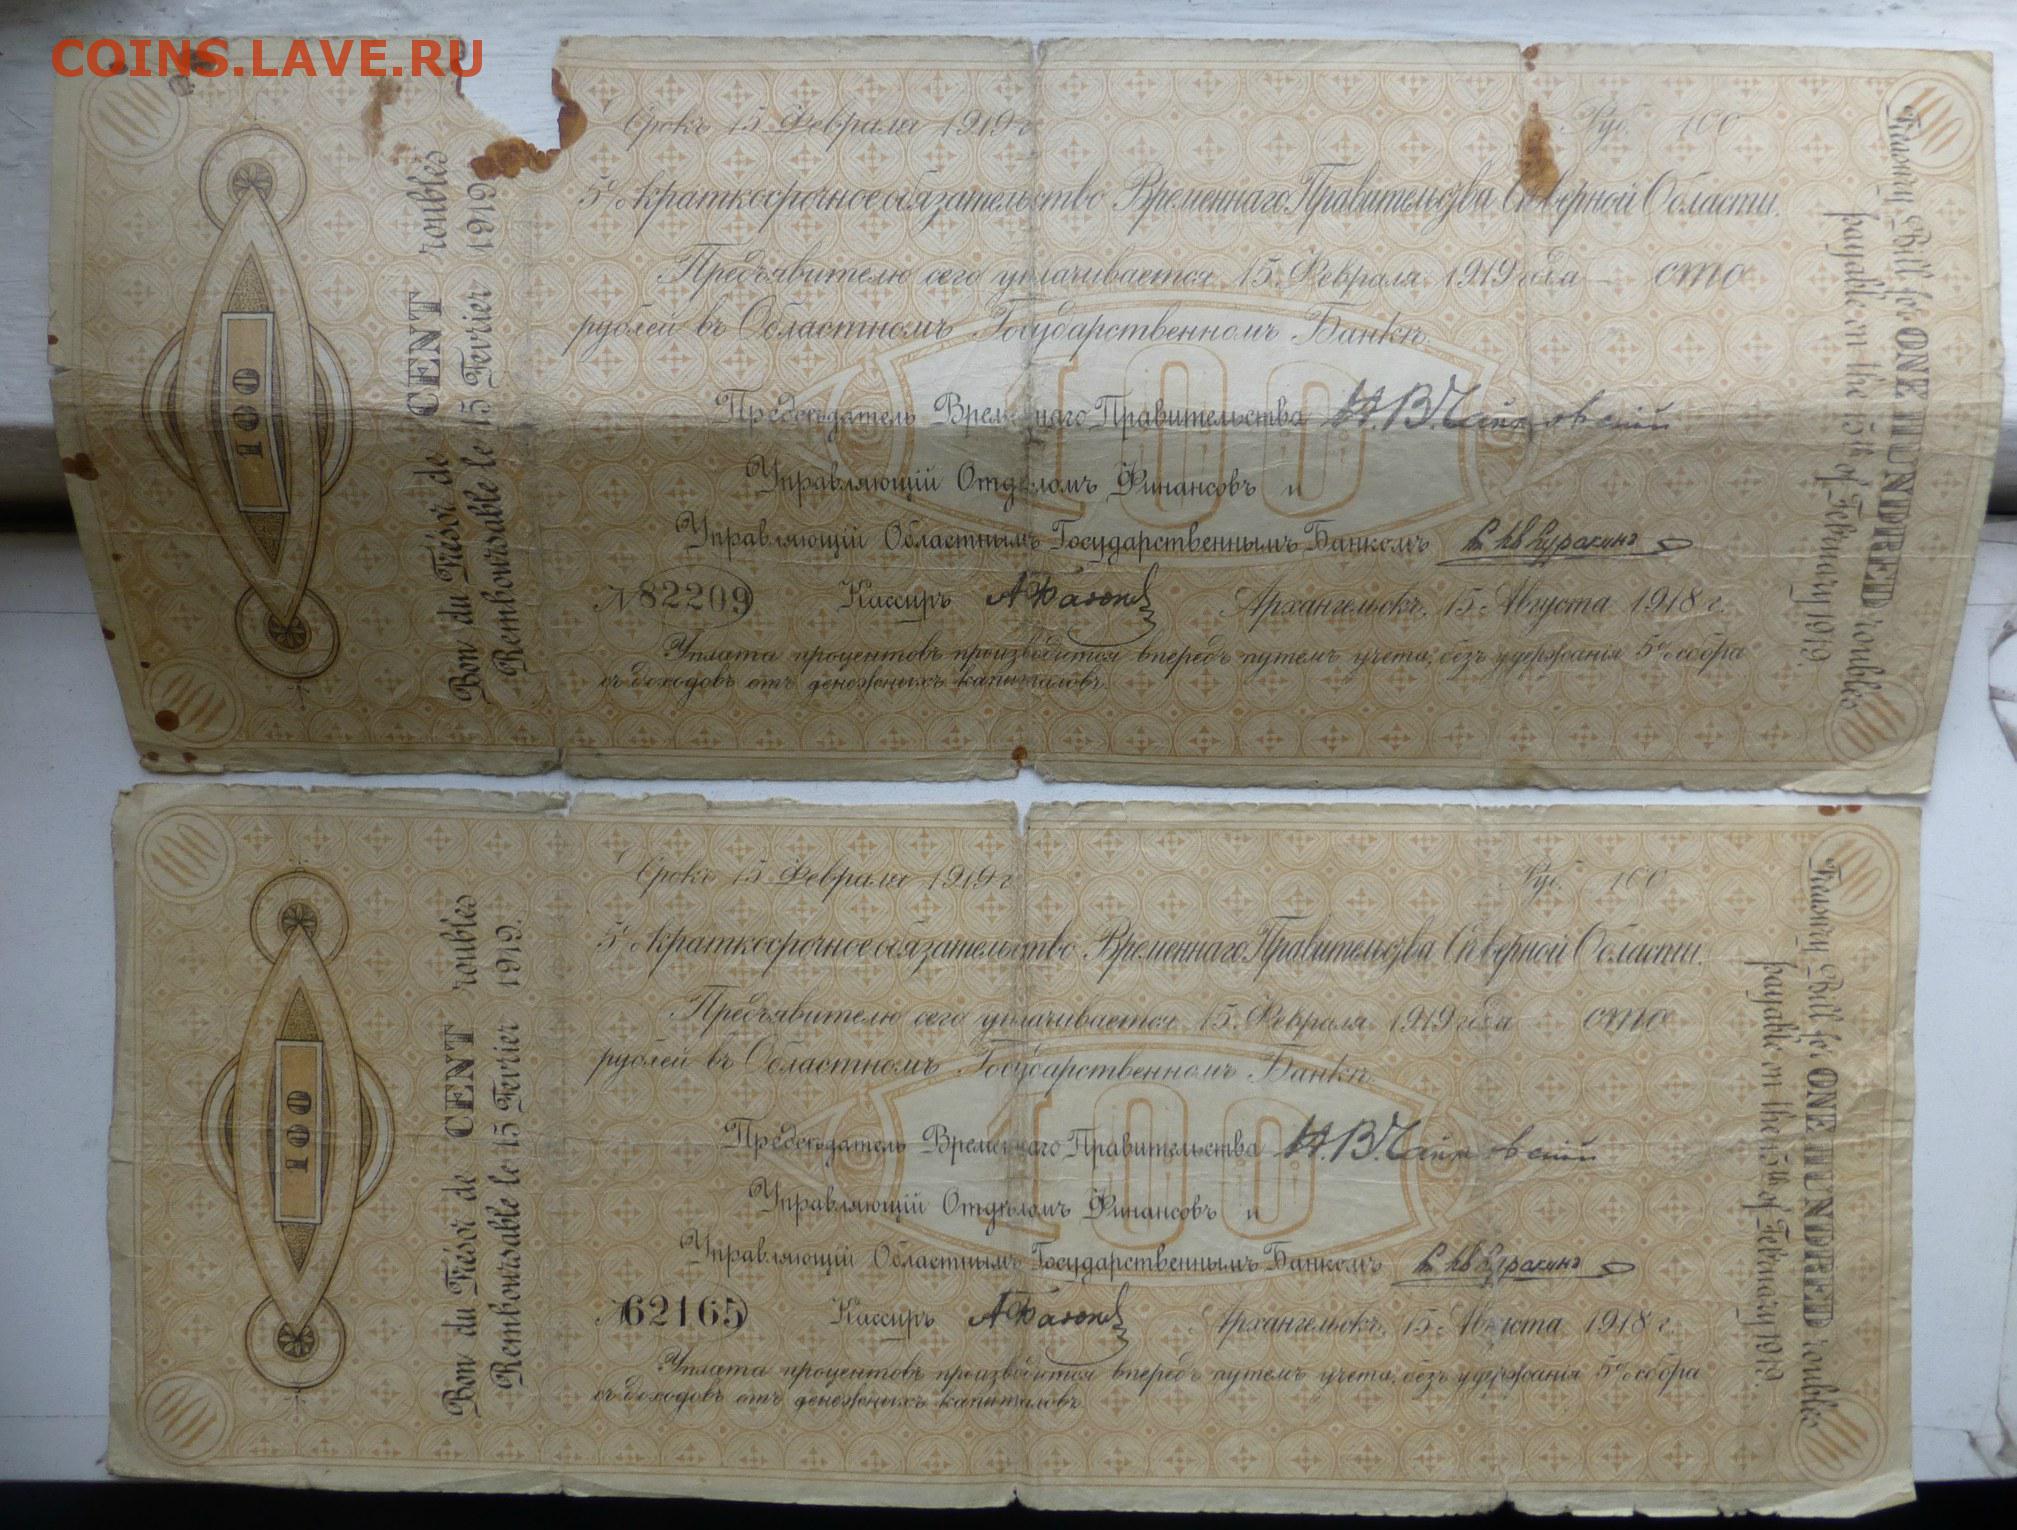 COINS.LAVE.RU
100
100
Срокъ 15 Февраля 1919 г
Руб. 100
5% краткосрочное обязательство Временнаго Правительства Сѣверной Области.
Предъявителю сего уплачивается 15 Февраля 1919 года — сто
рублей въ Областномъ Государственномъ Банкѣ.
100
Предсѣдатель Временнаго Правительства Н.В.Чайковский
Управляющій Отдѣломъ Финансовъ и
Управляющій Областнымъ Государственнымъ Банкомъ
№ 82209 Кассиръ
Архангельскъ, 15 Августа 1918 г.
Уплата процентовъ производится впередъ путемъ учета, безъ удержанія 5% сбора
съ доходовъ отъ денежныхъ капиталовъ.
100
Bon du Trésor de CENT roubles
Remboursable le 15 Fevrier 1919.
Treasury Bill for ONE HUNDRED roubles
payable on the 15th of February 1919.
100
100
100
100
Срокъ 15 Февраля 1919 г
Руб. 100
5% краткосрочное обязательство Временнаго Правительства Сѣверной Области.
Предъявителю сего уплачивается 15 Февраля 1919 года сто
рублей въ Областномъ Государственномъ Банкѣ.
100
Предсѣдатель Временнаго Правительства Н.В.Чайковский
Управляющій Отдѣломъ Финансовъ и
Управляющій Областнымъ Государственнымъ Банкомъ
№ 62165 Кассиръ
Архангельскъ, 15 Августа 1918 г.
Уплата процентовъ производится впередъ путемъ учета, безъ удержанія 5% сбора
съ доходовъ отъ денежныхъ капиталовъ.
100
Bon du Trésor de CENT roubles
Remboursable le 15 Fevrier 1919.
Treasury Bill for ONE HUNDRED roubles
payable on the 15th of February 1919.
100
100